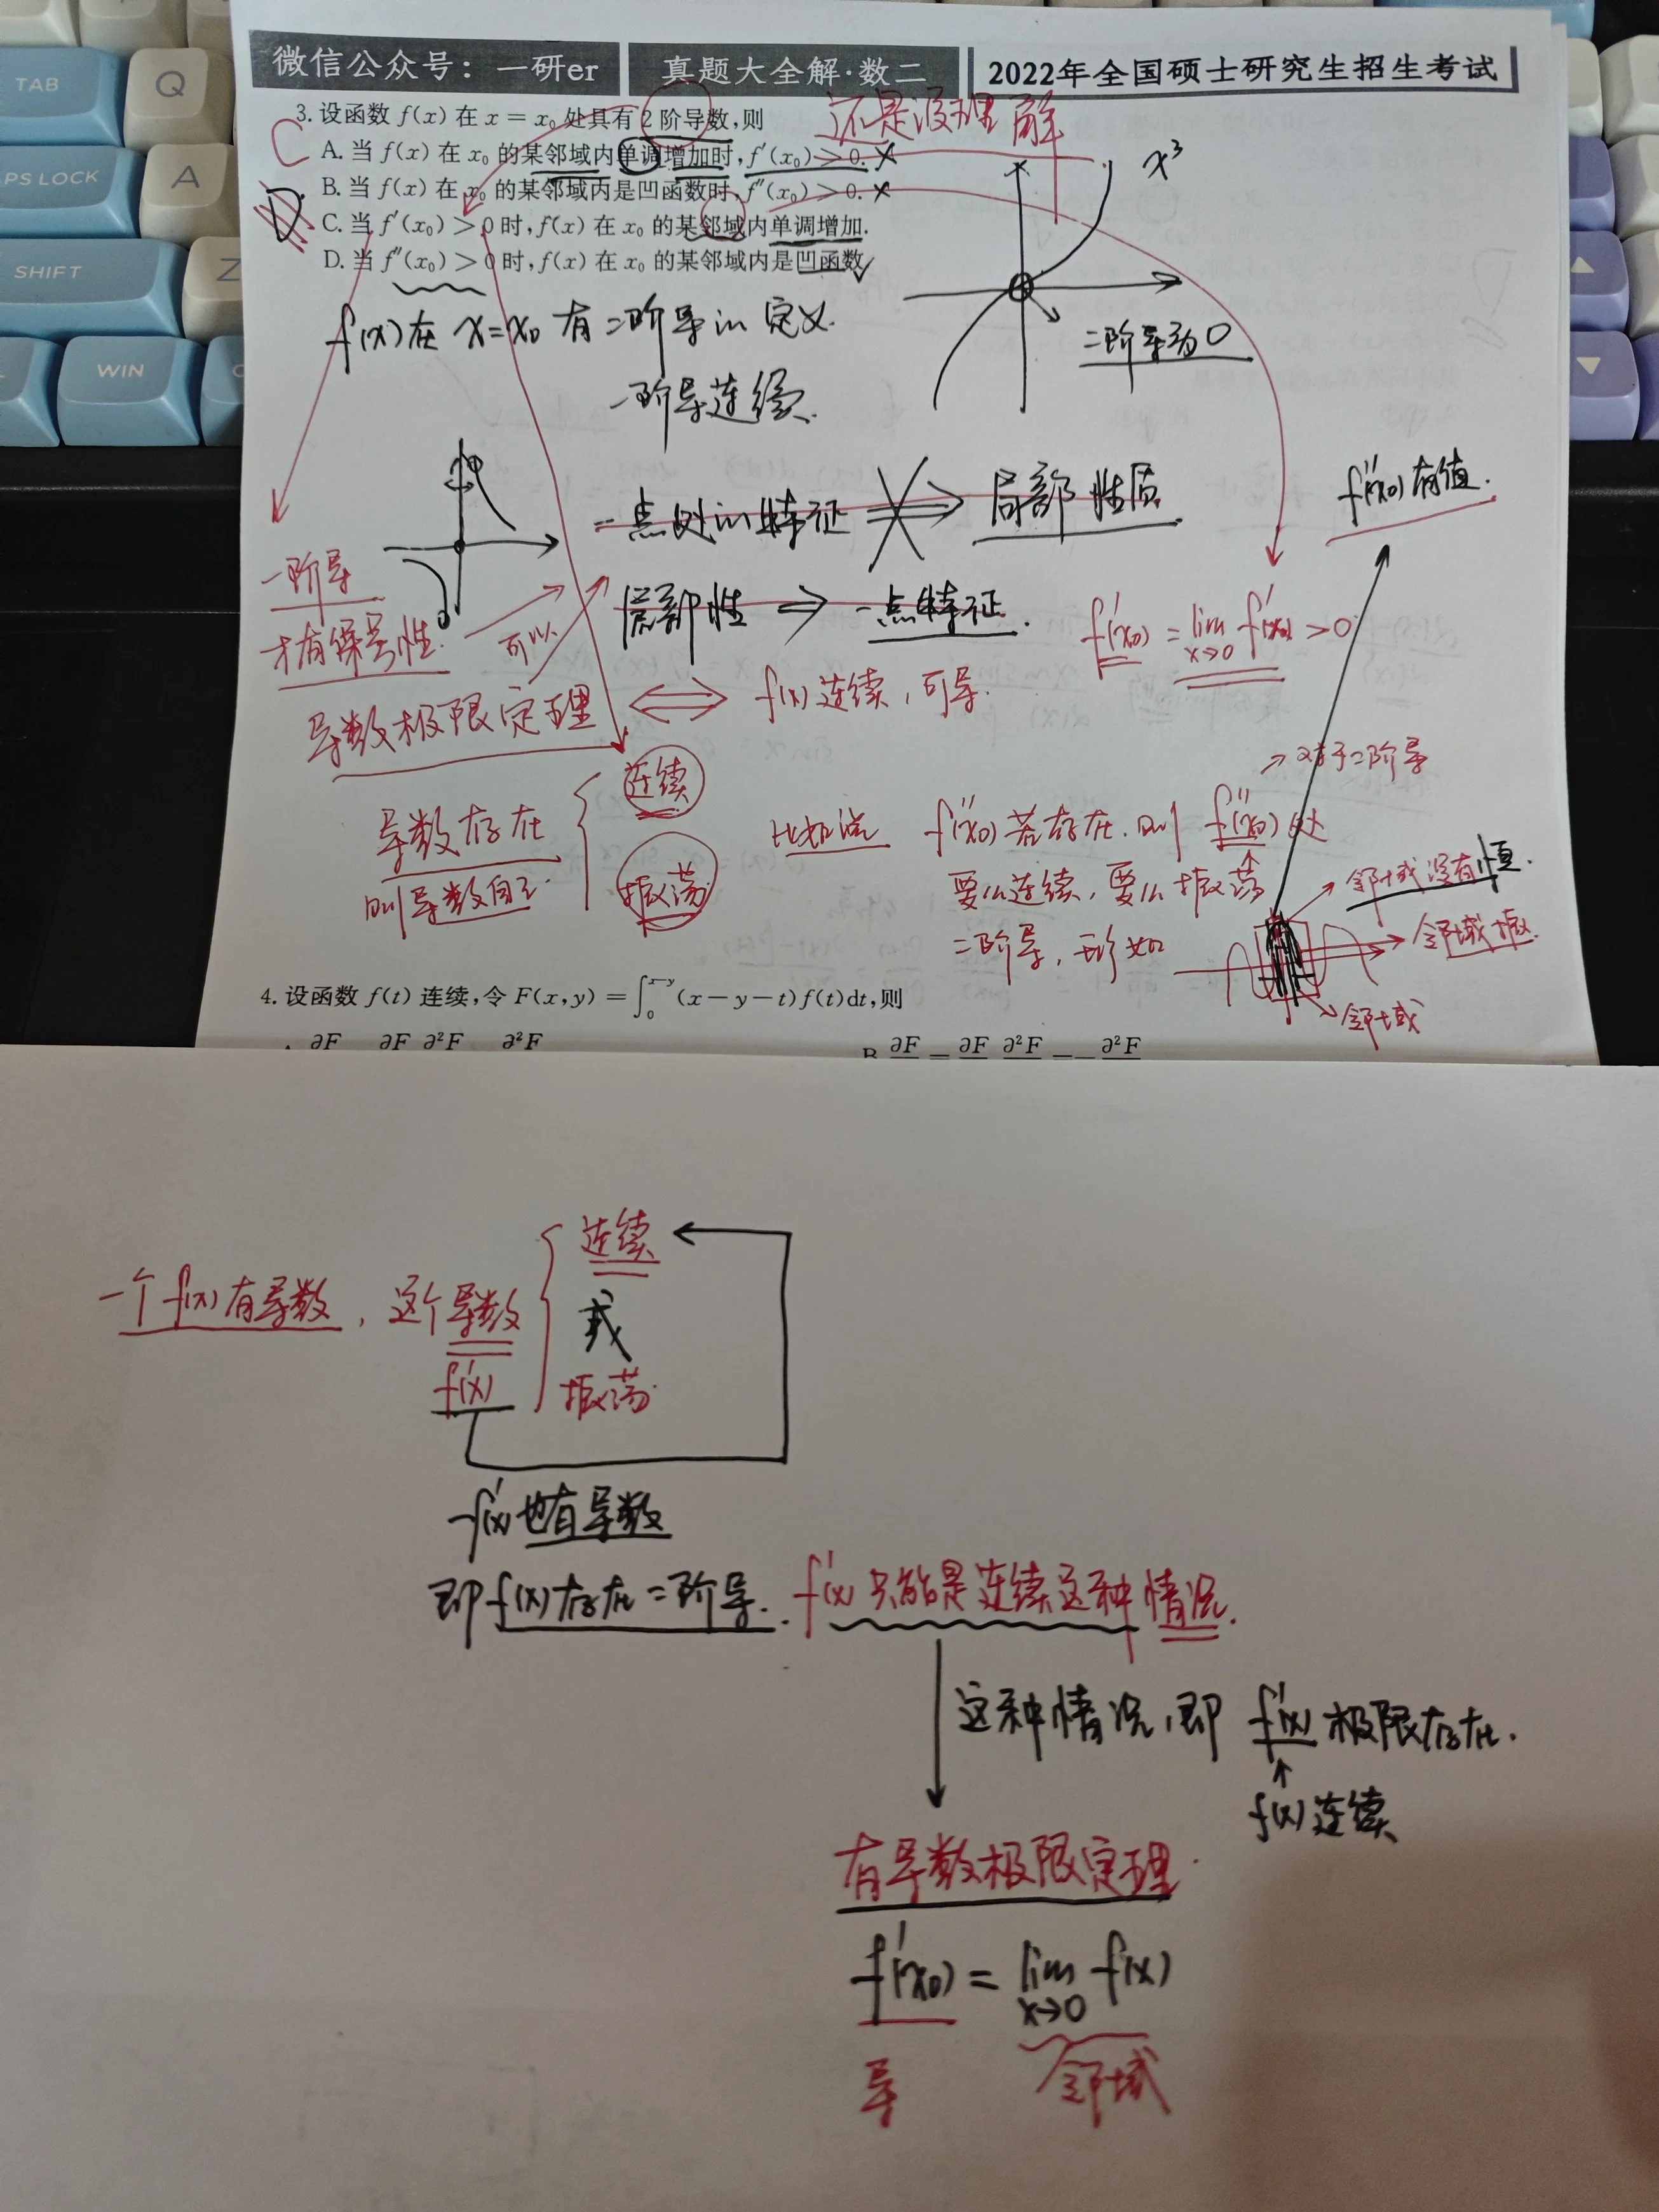 TAB
Q
PS LOCK
A
SHIFT
Z
WIN
微信公众号：一研er
真题大全解·数二
2022年全国硕士研究生招生考试
还是没理解
3. 设函数 f(x) 在 x = x₀ 处具有 2 阶导数,则
C
A. 当 f(x) 在 x₀ 的某邻域内单调增加时, f′(x₀) > 0. ×
B. 当 f(x) 在 x₀ 的某邻域内是凹函数时, f″(x₀) > 0. ×
D.
C. 当 f′(x₀) > 0 时, f(x) 在 x₀ 的某邻域内单调增加.
D. 当 f″(x₀) > 0 时, f(x) 在 x₀ 的某邻域内是凹函数 ✓
x³
f(x)在 x=x₀ 有二阶导的定义.
二阶导为0
一阶导连续.
一点处的特征 ⇒ 局部性质
f″(x₀)有值.
一阶导
才有保号性.
可以
局部性 ⇒ 一点特征.
f′(x₀) = lim x→0 f′(x₀) >0
导数极限定理 ⇔ f(x)连续,可导.
导数存在
则导数自己.
连续
振荡
→对于二阶导
比如说 f″(x₀)若存在.则 f″(x₀)处
要么连续,要么振荡
二阶导,形如
邻域没有恒.
邻域振.
邻域
4. 设函数 f(t) 连续,令 F(x,y) = ∫₀^{x−y} (x − y − t)f(t)dt,则
∂F ∂F ∂²F ∂²F
B ∂F = ∂F ∂²F = − ∂²F
一个f(x)有导数,这个导数
f′(x)
连续
或
振荡
f′(x)也有导数
即f(x)存在二阶导. f′(x)只能是连续这种情况.
这种情况,即 f′(x)极限存在.
↑
f(x)连续
有导数极限定理.
f′(x₀) = lim x→0 f(x)
导
邻域